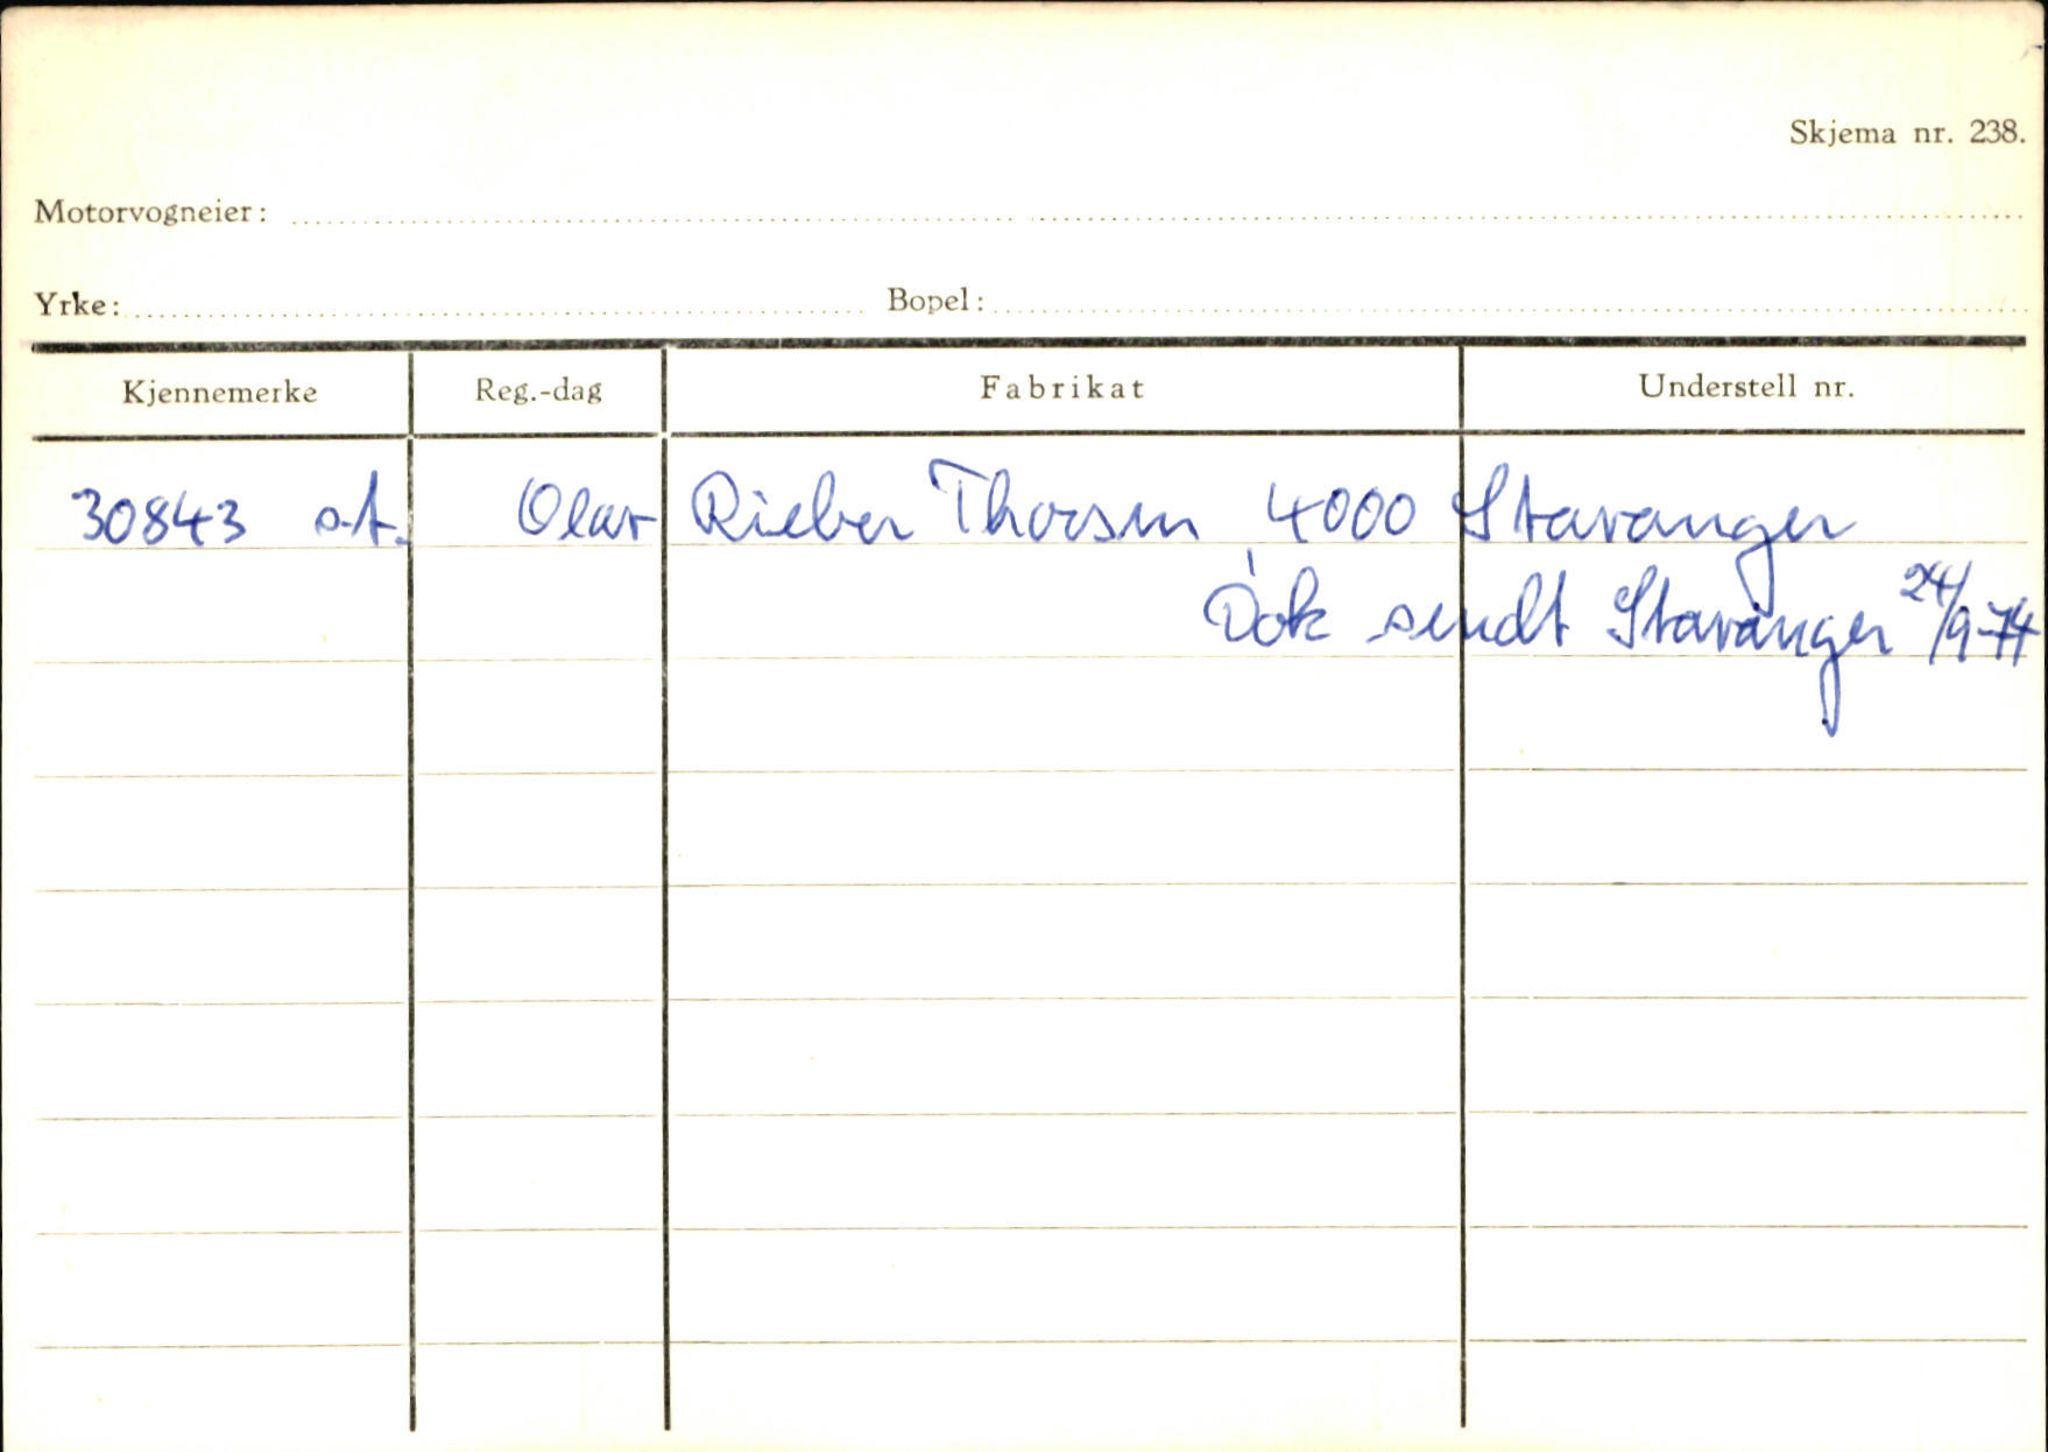 Skjema nr. 238.
Motorvogneier:
Yrke: Bopel:
Kjennemerke Reg.-dag Fabrikat Understell nr.
30843 o.t. Olav Rieber Thorsen, 4000 Stavanger
Dok sendt Stavanger 24/9-74